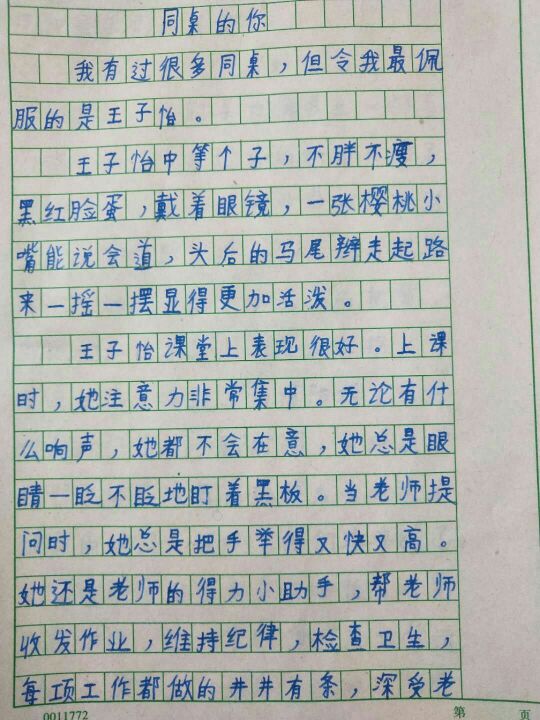 同桌的你
我有过很多同桌，但令我最佩
服的是王子怡。
王子怡中等个子，不胖不瘦，
黑红脸蛋，戴着眼镜，一张樱桃小
嘴能说会道，头后的马尾辫走起路
来一摇一摆显得更加活泼。
王子怡课堂上表现很好。上课
时，她注意力非常集中。无论有什
么响声，她都不会在意，她总是眼
睛一眨不眨地盯着黑板。当老师提
问时，她总是把手举得又快又高。
她还是老师的得力小助手，帮老师
收发作业，维持纪律，检查卫生，
每项工作都做的井井有条，深受老
0011772 第 页